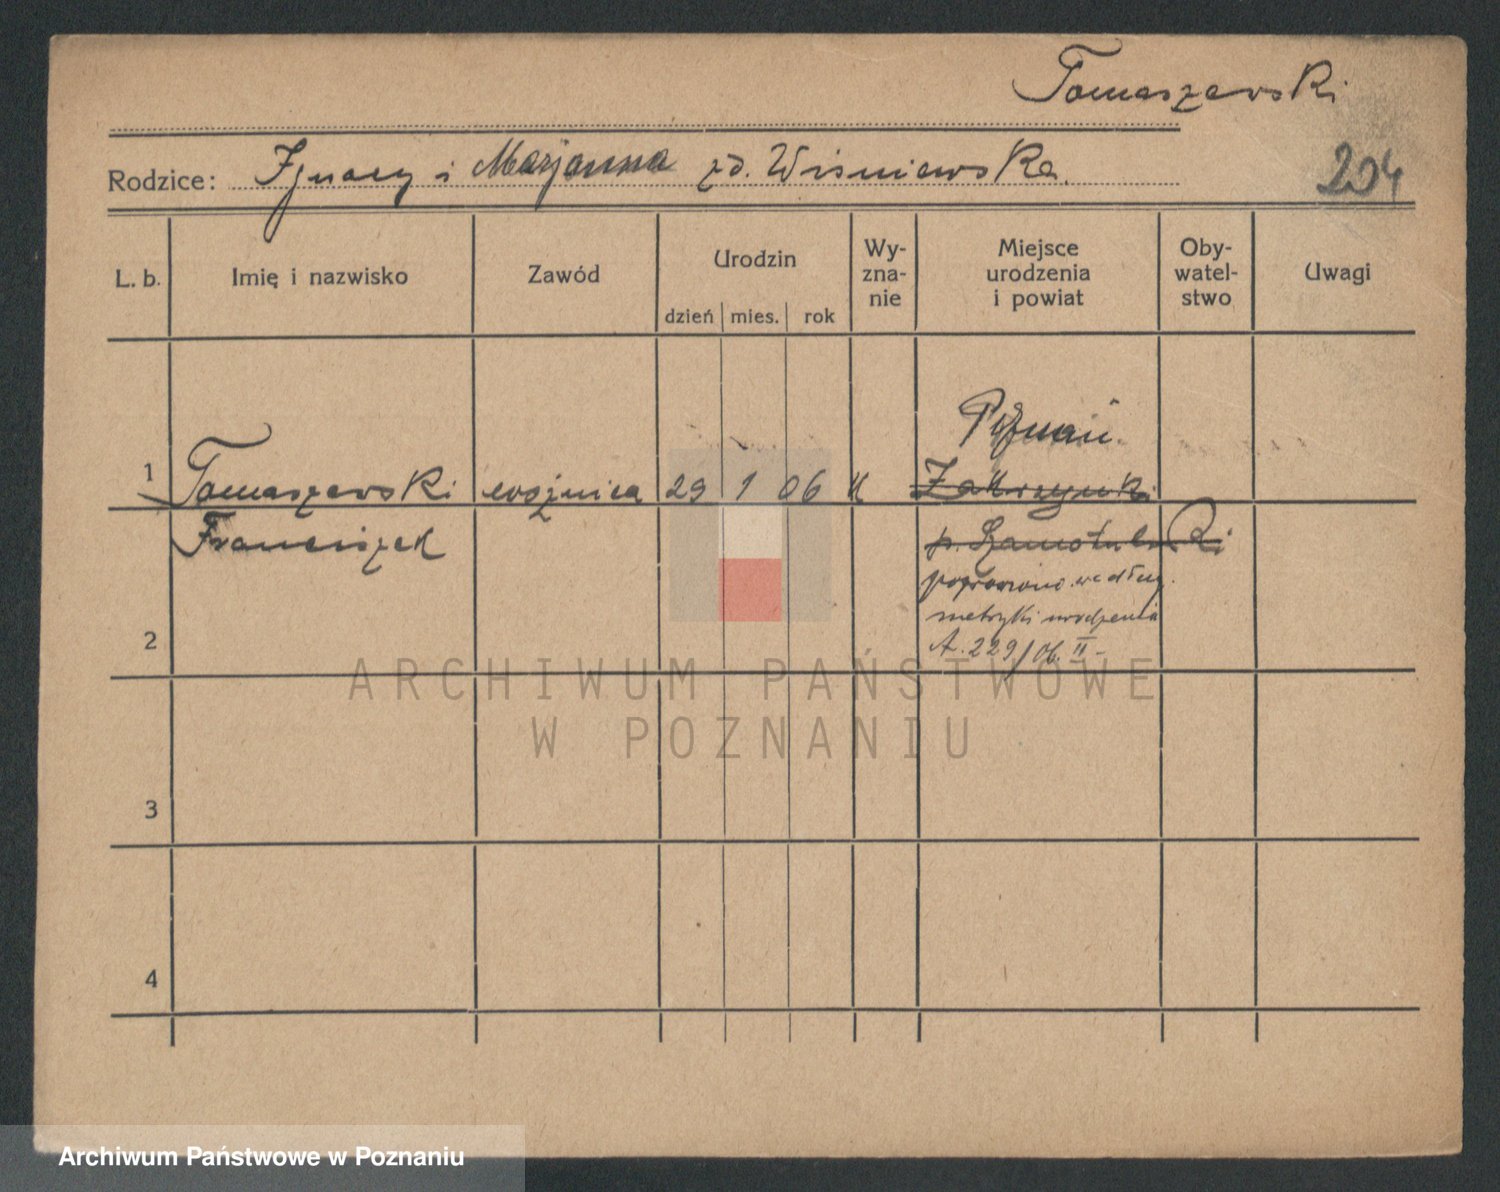 Tomaszewski
Rodzice: Ignacy i Marjanna zd. Wiśniewska.
204
L. b. Imię i nazwisko Zawód Urodzin dzień mies. rok Wy-zna-nie Miejsce urodzenia i powiat Oby-watel-stwo Uwagi
Poznań.
1 Tomaszewski woźnica 29 1 06 K Zakrzynki
Franciszek p. Szamotulski
poprawiono według
metryki urodzenia
2 A. 229/06. II -
ARCHIWUM PAŃSTWOWE
W POZNANIU
3
4
Archiwum Państwowe w Poznaniu